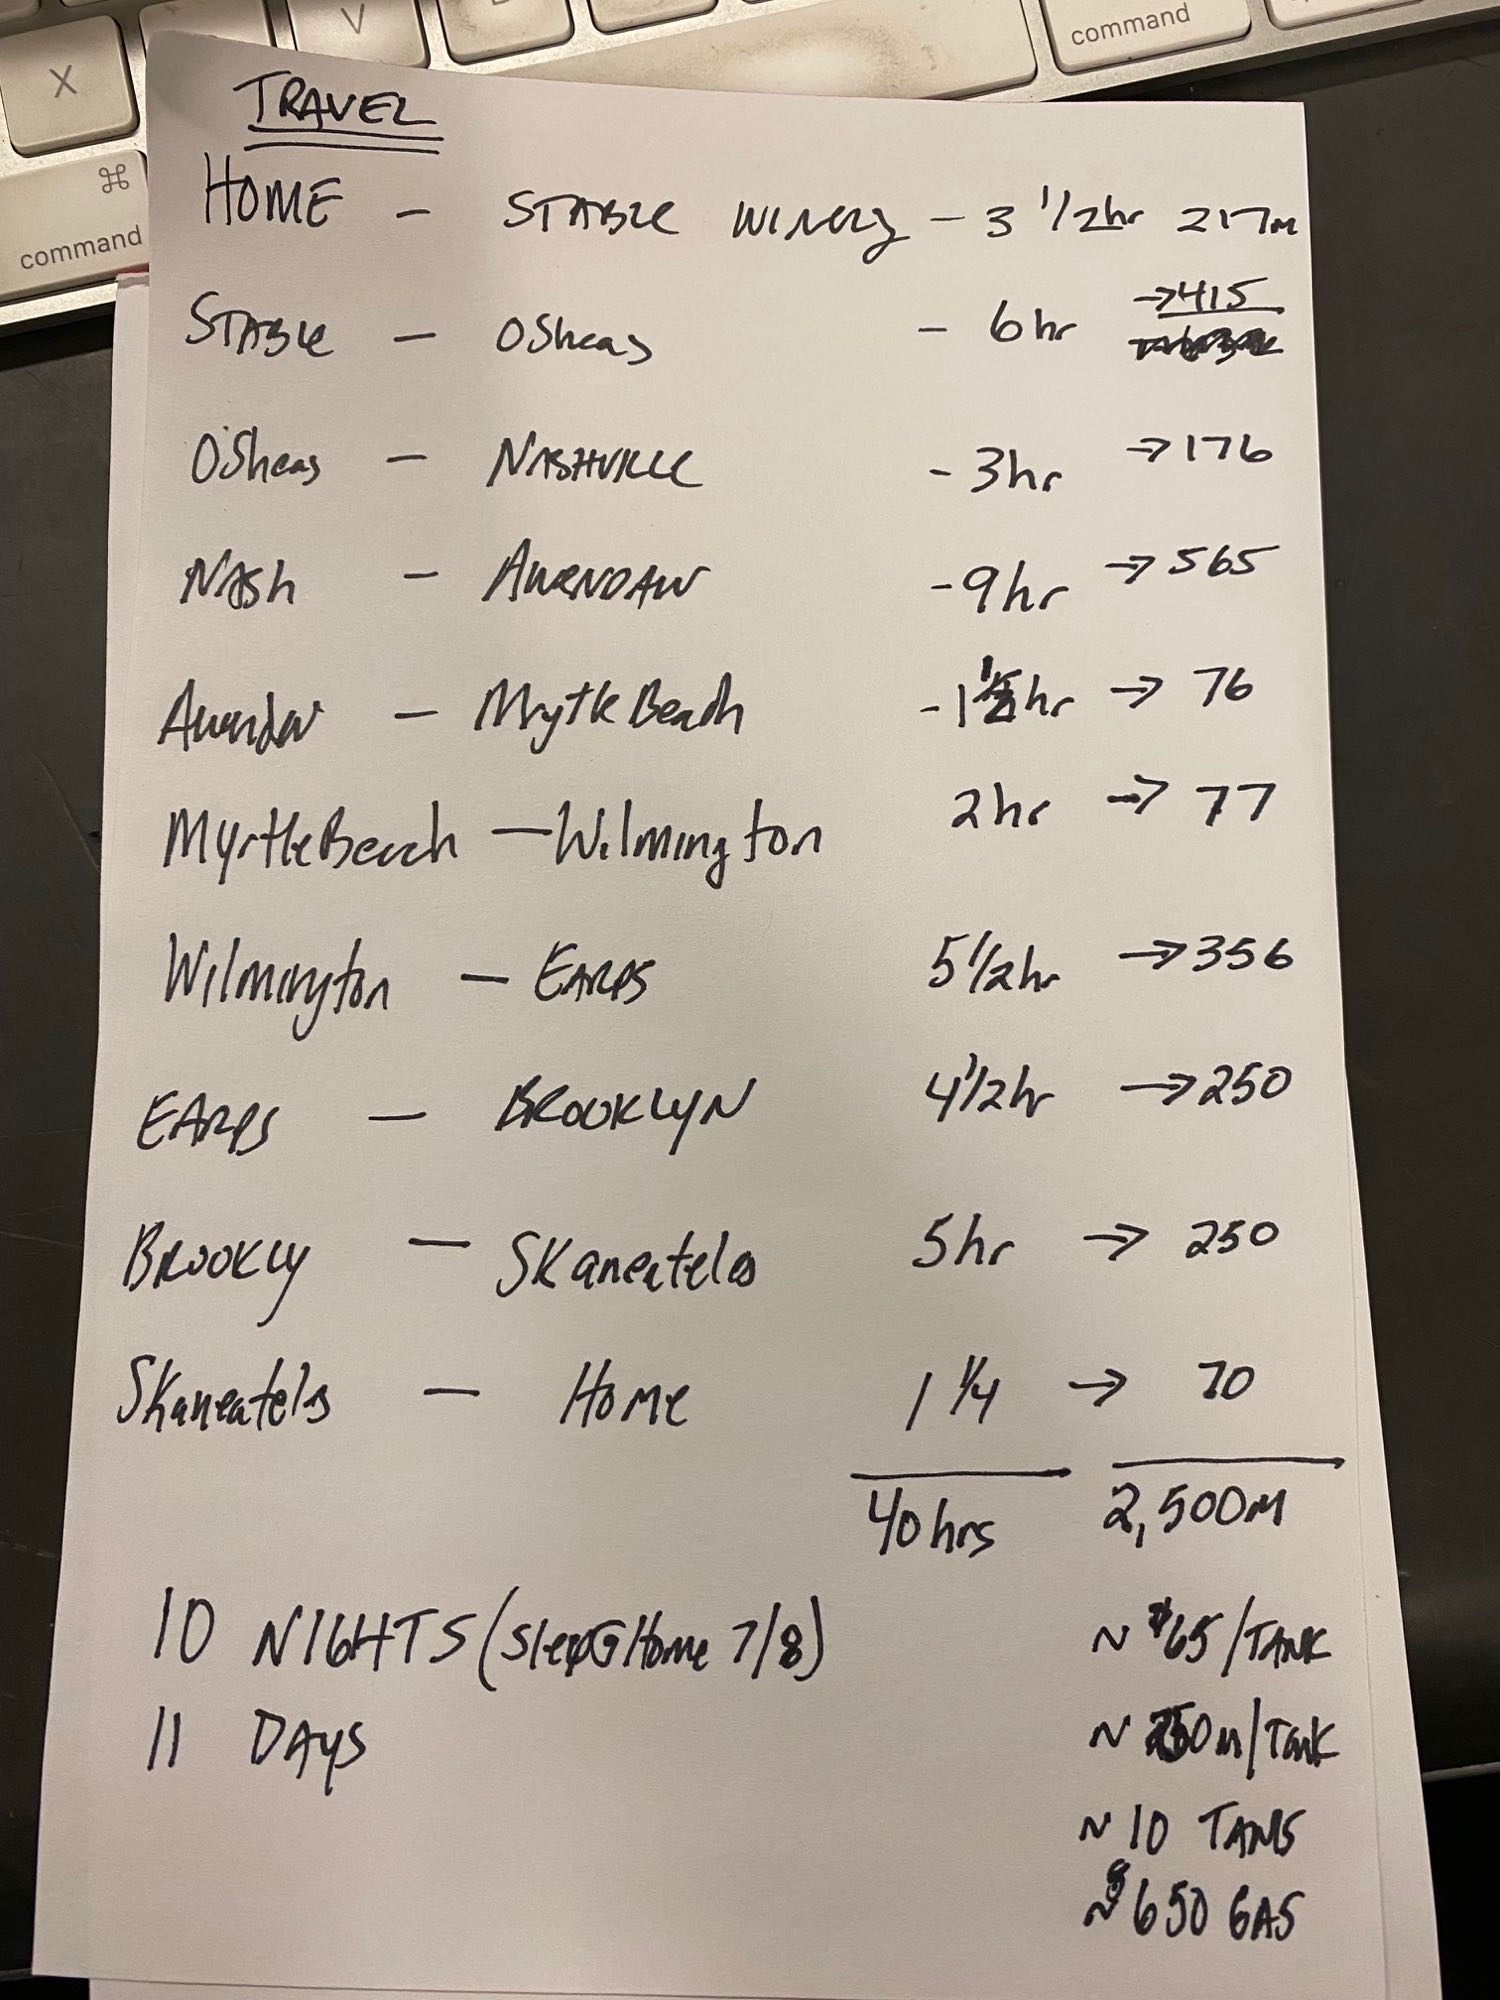 X
V
⌘
command
command
TRAVEL
HOME - STABLE WINERY - 3 1/2hr 217m
STABLE - OSheas - 6hr →415
O'Sheas - NASHVILLE - 3hr →176
NASH - AWENDAW - 9hr → 565
Awendaw - Myrtle Beach - 1 1/2hr → 76
Myrtle Beach - Wilmington 2hr → 77
Wilmington - EARPS 5 1/2hr → 356
EARPS - BROOKLYN 4 1/2hr → 250
BROOKLY - SKaneateles 5hr → 250
SKaneateles - Home 1 1/4 → 70
40 hrs 2,500M
10 NIGHTS (Sleep@Home 7/8) ~ $65/TANK
11 DAYS ~ 250m/Tank
~ 10 TANKS
~ $650 GAS